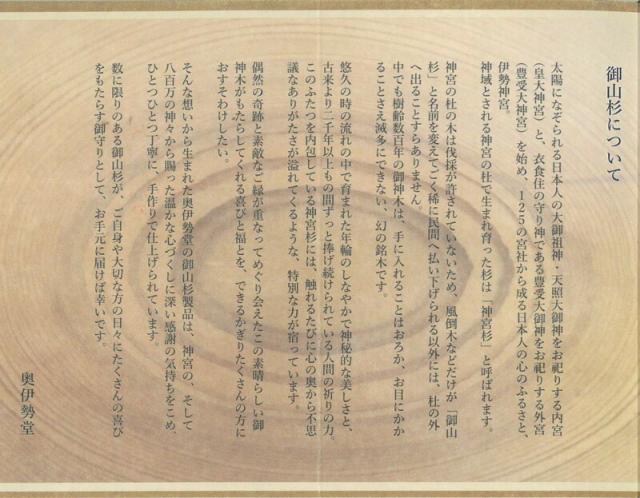 御山杉について
太陽になぞられる日本人の大御祖神・天照大御神をお祀りする内宮
（皇大神宮）と、衣食住の守り神である豊受大御神をお祀りする外宮
（豊受大神宮）を始め、125の宮社から成る日本人の心のふるさと、
伊勢神宮。
神域とされる神宮の杜で生まれ育った杉は「神宮杉」と呼ばれます。
神宮の杜の木は伐採が許されていないため、風倒木などだけが「御山
杉」と名前を変えてごく稀に民間へ払い下げられる以外には、杜の外
へ出ることすらありません。
中でも樹齢数百年の御神木は、手に入れることはおろか、お目にかか
ることさえ滅多にできない、幻の銘木です。
悠久の時の流れの中で育まれた年輪のしなやかで神秘的な美しさと、
古来より二千年以上もの間ずっと捧げ続けられている人間の祈りの力。
このふたつを内包している神宮杉には、触れるたびに心の奥から不思
議なありがたさが溢れてくるような、特別な力が宿っています。
偶然の奇跡と素敵なご縁が重なってめぐり会えたこの素晴らしい御
神木がもたらしてくれる喜びと福とを、できるかぎりたくさんの方に
おすそわけしたい。
そんな想いから生まれた奥伊勢堂の御山杉製品は、神宮の、そして
八百万の神々から賜った温かな心づくしに深い感謝の気持ちをこめ、
ひとつひとつ丁寧に、手作りで仕上げられています。
数に限りのある御山杉が、ご自身や大切な方の日々にたくさんの喜び
をもたらす御守りとして、お手元に届けば幸いです。
奥伊勢堂